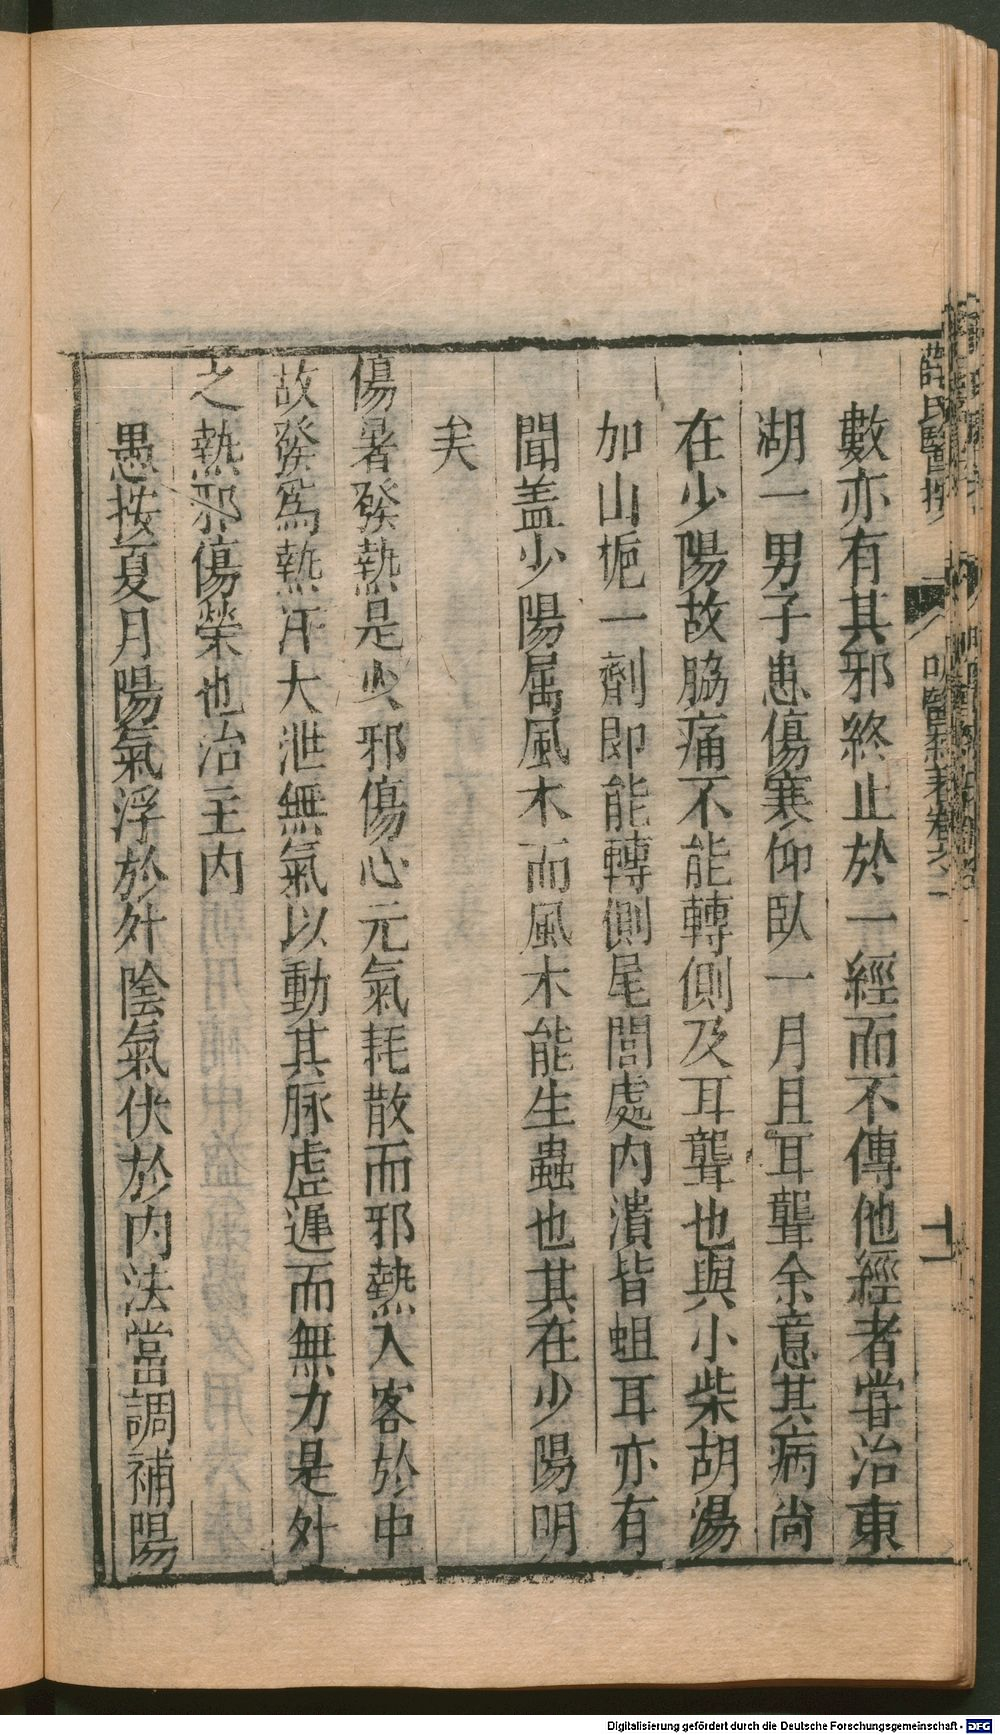 薛氏醫按 明醫雜著卷之二 十一
數亦有其邪終止於一經而不傳他經者甞治東
湖一男子患傷寒仰臥一月且耳聾余意其病尚
在少陽故脇痛不能轉側及耳聾也與小柴胡湯
加山梔一劑即能轉側尾閭處內潰皆蛆耳亦有
聞盖少陽属風木而風木能生蟲也其在少陽明
矣
傷暑發熱是火邪傷心元氣耗散而邪熱入客於中
故發爲熱汗大泄無氣以動其脉虚遲而無力是外
之熱邪傷榮也治主内
愚按夏月陽氣浮於外陰氣伏於内法當調補陽
Digitalisierung gefördert durch die Deutsche Forschungsgemeinschaft - DFG